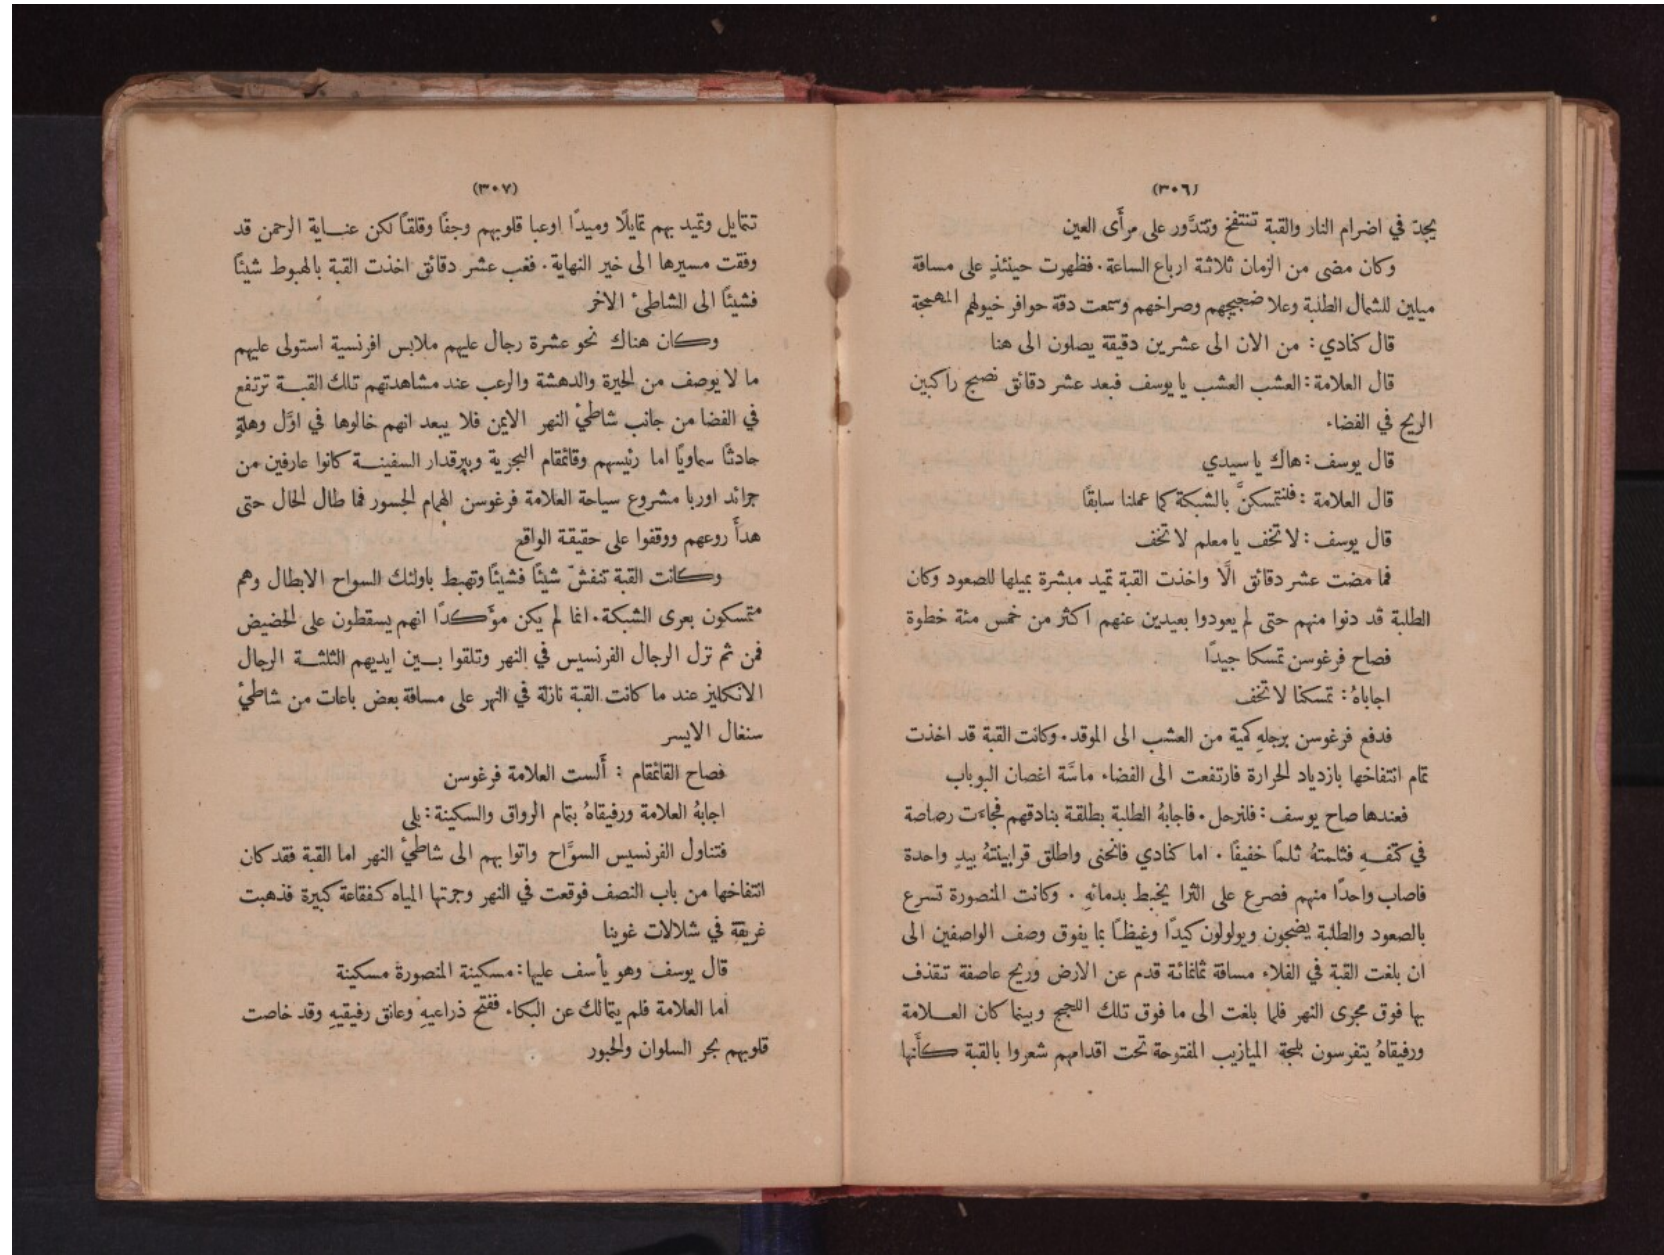 (٣٠٦)
يجدّ في اضرام النار والقبة تنتفخ وتتدَّور على مرأَى العين
وكان مضى من الزمان ثلاثة ارباع الساعة . فظهرت حينئذٍ على مسافة
ميلين للشمال الطلبة وعلا ضجيجهم وصراخهم وسمعت دقة حوافر خيولهم المهيجة
قال كنادي : من الان الى عشرين دقيقة يصلون الى هنا
قال العلامة : العشب العشب يا يوسف فبعد عشر دقائق نصبح راكبين
الريح في الفضاء
قال يوسف : هاك يا سيدي
قال العلامة : فلنتمسكنَّ بالشبكة كما عملنا سابقًا
قال يوسف : لا تخف يا معلم لا تخف
فما مضت عشر دقائق الَّا واخذت القبة تميد مبشرة بميلها للصعود وكان
الطلبة قد دنوا منهم حتى لم يعودوا بعيدين عنهم اكثر من خمس مئة خطوة
فصاح فرغوسن تمسكا جيدًا
اجاباهُ : تمسكنا لا تخف
فدفع فرغوسن برجلهِ كمية من العشب الى الموقد . وكانت القبة قد اخذت
تمام انتفاخها بازدياد الحرارة فارتفعت الى الفضاء ماسَّة اغصان البوباب
فعندها صاح يوسف : فلنرحل . فاجابهُ الطلبة بطلقة بنادقهم فجاءت رصاصة
في كتفـهِ فثلمتهُ ثلمًا خفيفًا . اما كنادي فانحنى واطلق قرابينتهُ بيدٍ واحدة
فاصاب واحدًا منهم فصرع على الثرا يخبط بدمائهِ . وكانت المنصورة تسرع
بالصعود والطلبة يضجون ويولولون كيدًا وغيظـًا بما يفوق وصف الواصفين الى
ان بلغت القبة في الفلاء مسافة ثمانمائة قدم عن الارض وريح عاصفة تنقذف
بها فوق مجرى النهر فلما بلغت الى ما فوق تلك اللجج وبينما كان العـــلامة
ورفيقاهُ يتفرسون بلجة الميازيب المفتوحة تحت اقدامهم شعروا بالقبة كـأنها
(٣٠٧)
تتمايل وتميد بهم تمايلًا وميدًا اوعبا قلوبهم وجفًا وقلقًا لكن عنـــاية الرحمن قد
وفقت مسيرها الى خير النهاية . فغب عشر دقائق اخذت القبة بالهبوط شيئًا
فشيئًا الى الشاطئ الاخر
وكان هناك نحو عشرة رجال عليهم ملابس افرنسية استولى عليهم
ما لا يوصف من الحيرة والدهشة والرعب عند مشاهدتهم تلك القبـــة ترتفع
في الفضا من جانب شاطئ النهر الايمن فلا يبعد انهم خالوها في اوَّل وهلةٍ
حادثًا سماويًا اما رئيسهم وقائمقام البحرية وبيرقدار السفينـــة كانوا عارفين من
جرائد اوربا مشروع سياحة العلامة فرغوسن الهمام الجسور فما طال الحال حتى
هدأَ روعهم ووقفوا على حقيقة الواقع
وكانت القبة تنفشّ شيئًا فشيئًا وتهبط باولئك السواح الابطال وهم
متمسكون بعرى الشبكة . انما لم يكن موَّكدًا انهم يسقطون على الحضيض
فمن ثم نزل الرجال الفرنسيس في النهر وتلقوا بـــين ايديهم الثلثـــة الرجال
الانكليز عند ما كانت القبة نازلة في النهر على مسافة بعض باعات من شاطئ
سنغال الايسر
فصاح القائمقام : أَلست العلامة فرغوسن
اجابهُ العلامة ورفيقاهُ بتمام الرواق والسكينة : بلى
فتناول الفرنسيس السوَّاح واتوا بهم الى شاطئ النهر اما القبة فقد كان
انتفاخها من باب النصف فوقعت في النهر وجرتها المياه كفقاعة كبيرة فذهبت
غريقة في شلالات غوينا
قال يوسف وهو يأسف عليها : مسكينة المنصورة مسكينة
اما العلامة فلم يتمالك عن البكاء . ففتح ذراعيهِ وعانق رفيقيهِ وقد خاصت
قلوبهم بحر السلوان والحبور